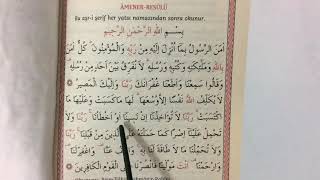 ÂMENER-RESÛLÜ
Bu aşr-i şerif her yatsı namazından sonra okunur.
بِسْمِ اللّٰهِ الرَّحْمٰنِ الرَّحِيمِ
اٰمَنَ الرَّسُولُ بِمَا اُنْزِلَ اِلَيْهِ مِنْ رَبِّهِ وَالْمُؤْمِنُونَ كُلٌّ اٰمَنَ
بِاللّٰهِ وَمَلٰئِكَتِهِ وَكُتُبِهِ وَرُسُلِهِ لَا نُفَرِّقُ بَيْنَ اَحَدٍ مِنْ رُسُلِهِ
وَقَالُوا سَمِعْنَا وَاَطَعْنَا غُفْرَانَكَ رَبَّنَا وَاِلَيْكَ الْمَصِيرُ
لَا يُكَلِّفُ اللّٰهُ نَفْسًا اِلَّا وُسْعَهَا لَهَا مَا كَسَبَتْ وَعَلَيْهَا مَا
اكْتَسَبَتْ رَبَّنَا لَا تُؤَاخِذْنَا اِنْ نَسِينَا اَوْ اَخْطَأْنَا رَبَّنَا وَلَا
تَحْمِلْ عَلَيْنَا اِصْرًا كَمَا حَمَلْتَهُ عَلَى الَّذِينَ مِنْ قَبْلِنَا رَبَّنَا
وَلَا تُحَمِّلْنَا مَا لَا طَاقَةَ لَنَا بِهِ وَاعْفُ عَنَّا وَاغْفِرْ لَنَا
وَارْحَمْنَا اَنْتَ مَوْلٰينَا فَانْصُرْنَا عَلَى الْقَوْمِ الْكَافِرِينَ